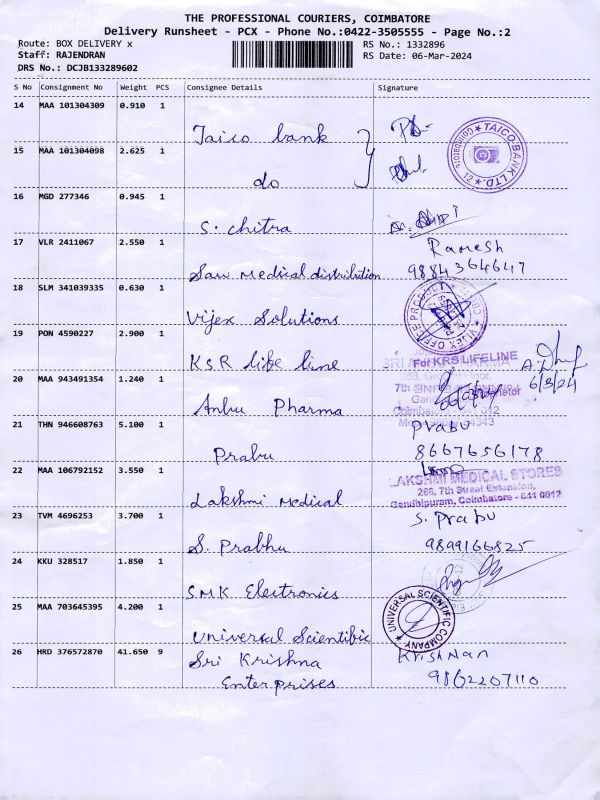 THE PROFESSIONAL COURIERS, COIMBATORE
Delivery Runsheet - PCX - Phone No.:0422-3505555 - Page No.:2
Route: BOX DELIVERY x
RS No.: 1332896
Staff: RAJENDRAN
RS Date: 06-Mar-2024
DRS No.: DCJB133289602
S No Consignment No Weight PCS Consignee Details Signature
14 MAA 101304309 0.910 1
Taico bank
TAICO BANK LTD.
15 MAA 101304098 2.625 1
do
16 MGD 277346 0.945 1
S. chitra
17 VLR 2411067 2.550 1
Ramesh
San medical distribution 9884364647
18 SLM 341039335 0.630 1
Vijex Solutions
VIJEX OFFICE PRODUCT
19 PON 4590227 2.900 1
KSR life line
For KRS LIFELINE
6/3/24
20 MAA 943491354 1.240 1
Anbu Pharma
21 THN 946608763 5.100 1
Prabu
Prabu 8667656178
22 MAA 106792152 3.550 1
Lakshmi medical
LAKSHMI MEDICAL STORES
268, 7th Street Extension,
Gandhipuram, Coimbatore - 641 0012
23 TVM 4696253 3.700 1
S. Prabu
S. Prabhu 9899166825
24 KKU 328517 1.850 1
SMK Electronics
25 MAA 703645395 4.200 1
Universal Scientific
UNIVERSAL SCIENTIFIC COMPANY
26 HRD 376572870 41.650 9
Sri Krishna KrishNan
Enterprises 9862207110